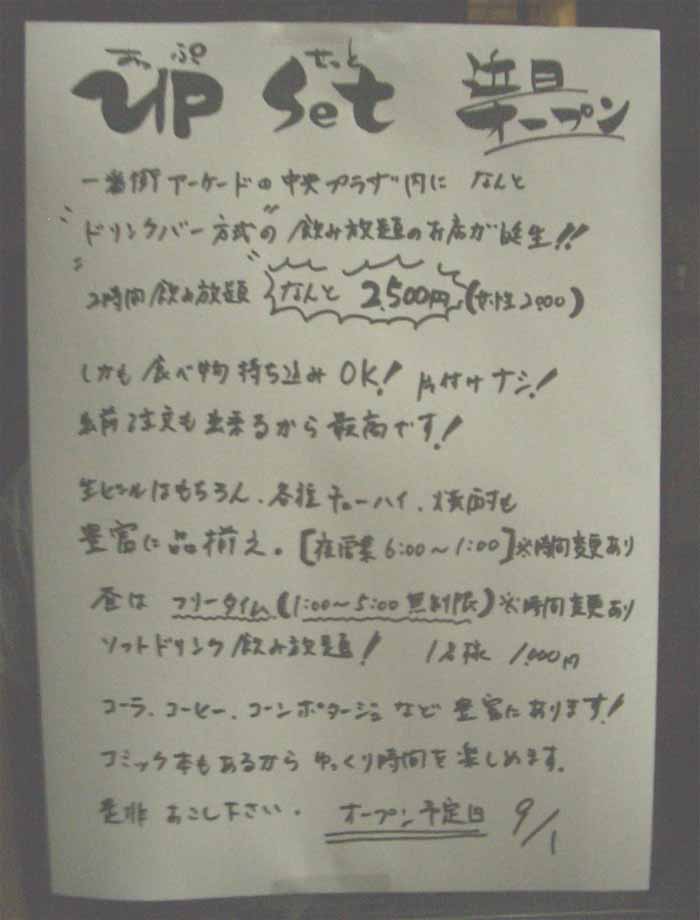 あっぷ せっと
UP Set 近日オープン
一番街アーケードの中央プラザ内に なんと
ドリンクバー方式の 飲み放題のお店が誕生!!
2時間飲み放題 なんと 2,500円 (女性2,000)
しかも 食べ物持ち込み OK! 片付けナシ!
出前注文も出来るから最高です!
生ビールはもちろん、各種チューハイ、焼酎も
豊富に品揃え。[夜営業 6:00〜1:00]※時間変更あり
昼は フリータイム (1:00〜5:00 無制限)※時間変更あり
ソフトドリンク飲み放題! 1名様 1,000円
コーラ、コーヒー、コーンポタージュなど 豊富にあります!
コミック本もあるから ゆっくり時間を楽しめます。
是非 おこし下さい。 オープン予定日 9/1